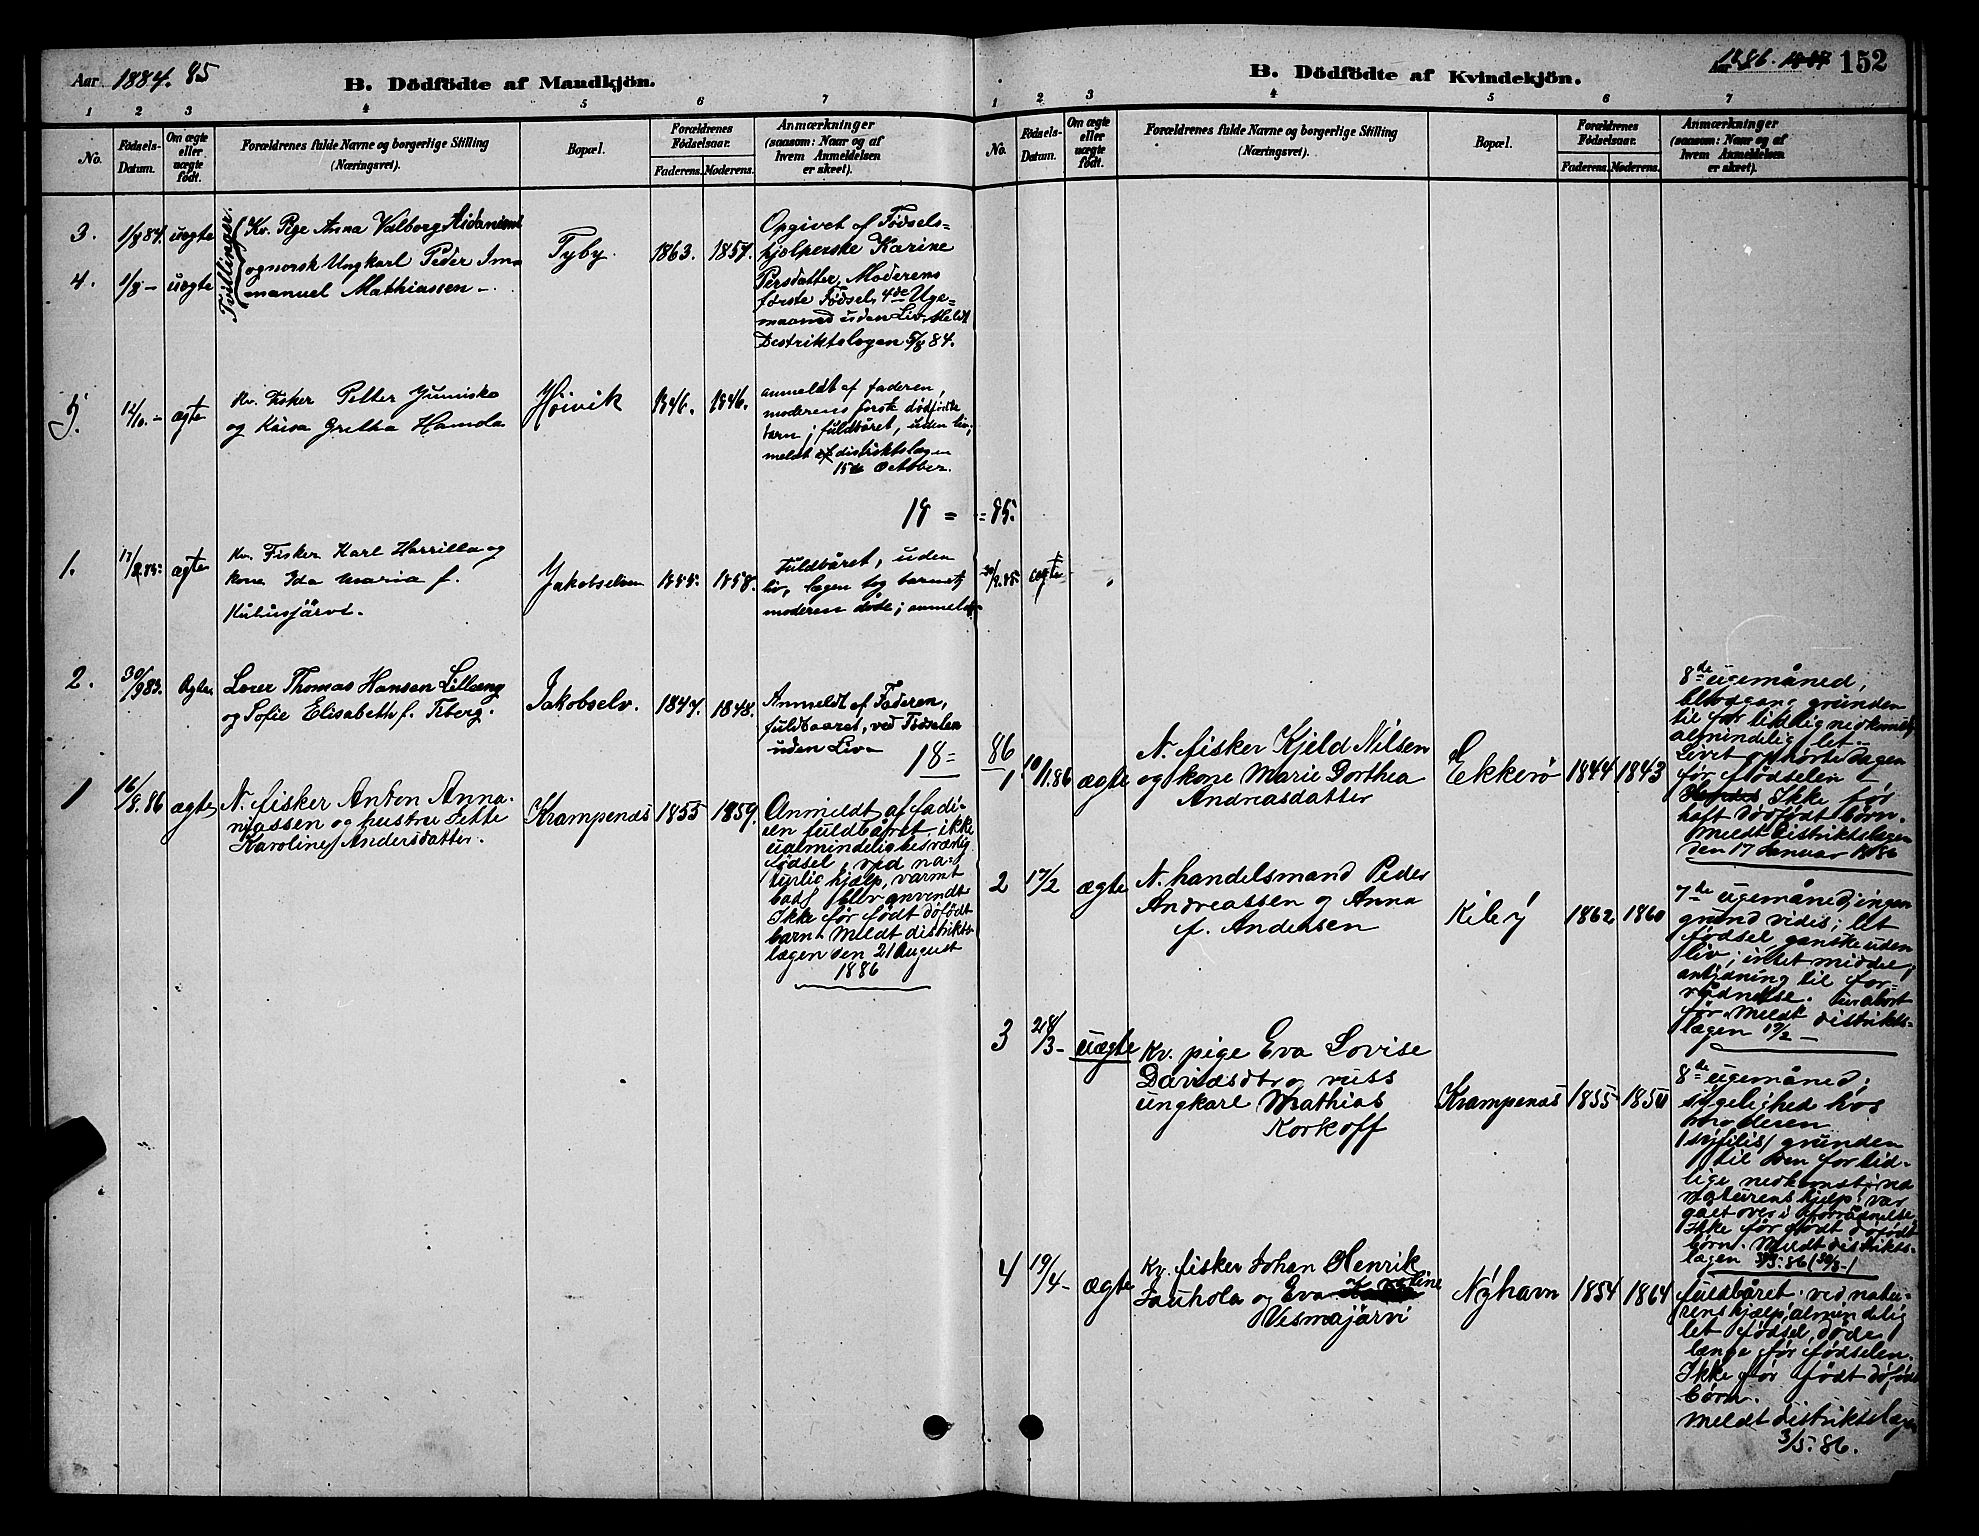 Aar 1884. 85
B. Dödfödte af Mandkjön.
1 2 3 4 5 6 7
No.
Födsels-
Datum.
Om ægte
eller
uægte
födt.
Forældrenes fulde Navne og borgerlige Stilling
(Næringsvei).
Bopæl.
Forældrenes
Födselsaar.
Faderens. Moderens.
Anmærkninger
(saasom: Naar og af
hvem Anmeldelsen
er skeet).
3. 1/8 84. uægte
4. 1/8 – uægte
Tvillinger.
Kv. Pige Anna Valborg
og norsk Ungkarl Peder Im-
manuel Mathiassen –
Tyby. 1863. 1857.
Opgivet af Fødsels-
hjælperske Karine
Persdatter, Moderens
første Fødsel, 4de Uge-
maaned uden Liv. Meldt
Distriktslægen 5/8 84.
5. 12/10. – ægte
Kv. Fisker Petter
og Kaisa Gretha Hamda
Høivik 1846. 1846.
anmeldt af faderen,
moderens første dødfødte
barn; fuldbåret, uden liv;
meldt af distriktslægen
15de October.
18 =
1. ægte
Kv. Fisker Karl Harrilla og
kone Ida Maria f.
Jakobselven 1855. 1858.
Fuldbåret, uden
liv, lægen tog barnet;
moderen døde; anmeldt
2. 30/9 83. Ægte
Lærer Thomas Hansen Lillæng
og Sofie Elisabeth f. Fiberg.
Jakobselv. 1847. 1848.
Anmeldt af Faderen,
fuldbaaret, ved Fødselen
uden Liv
18=
1 16/8.86 ægte
N. fisker Anton Anna-
niassen og hustru Jette
Karoline Andersdatter.
Krampenæs 1855 1859.
Anmeldt af fade-
ren fuldbåret, ikke
ualmindelig besværlig
fødsel, ved na-
turlig hjælp, varmt
bad blev anvendt
Ikke før født dødfødt
barn. Meldt distrikts-
lægen den 21 August
1886
B. Dödfödte af Kvindekjön.
1886. 1887 152
1 2 3 4 5 6 7
No.
Födsels-
Datum.
Om ægte
eller
uægte
födt.
Forældrenes fulde Navne og borgerlige Stilling
(Næringsvei).
Bopæl.
Forældrenes
Födselsaar.
Faderens. Moderens.
Anmærkninger
(saasom: Naar og af
hvem Anmeldelsen
er skeet).
= 85.
ægte
86
1 10/1.86 ægte
N. fisker Kjeld Nilsen
og kone Marie Dorthea
Andreasdatter
Ekkerø 1844 1843
8de ugemåned,
blodgang grunden
til for tidlig nedkomst;
almindelig let
Livet ophørte dagen
før fødselen
Ikke før
haft dødfødt børn.
Meldt Distriktslægen
den 17 Januar 1886
2 17/2 ægte
N. handelsmand Peder
Andreassen og Anna
f. Andersen
Kibÿ 1862 1860
7de ugemåned; ingen
grund vides; let
fødsel, ganske uden
liv, intet middel;
antydning til for-
rådnelse. En abort
før. Meldt distrikts-
lægen 19/2 –
3 28/3 – uægte
Kv. pige Eva Lovise
Davidsdtr og russ
ungkarl Mathias
Korkoff
Krampenæs 1855
8de ugemåned;
sygelighed hos
moderen
(syfilis) grunden
til den for tid-
lige nedkomst; ved
naturens hjælp; var
gået over i forrådnelse
Ikke før født dødfødt
børn. Meldt distrikts-
lægen
4 19/4 – ægte
Kv. fisker Johan Henrik
Jauhola og Eva
Vesmajärvi
Nÿhavn 1854 1864
fuldbåret. ved natu-
rens hjælp; almindelig
let fødsel, døde
længe før fødselen.
Ikke før født dødfødt
børn.
Meldt distriktslægen
3/5. 86.